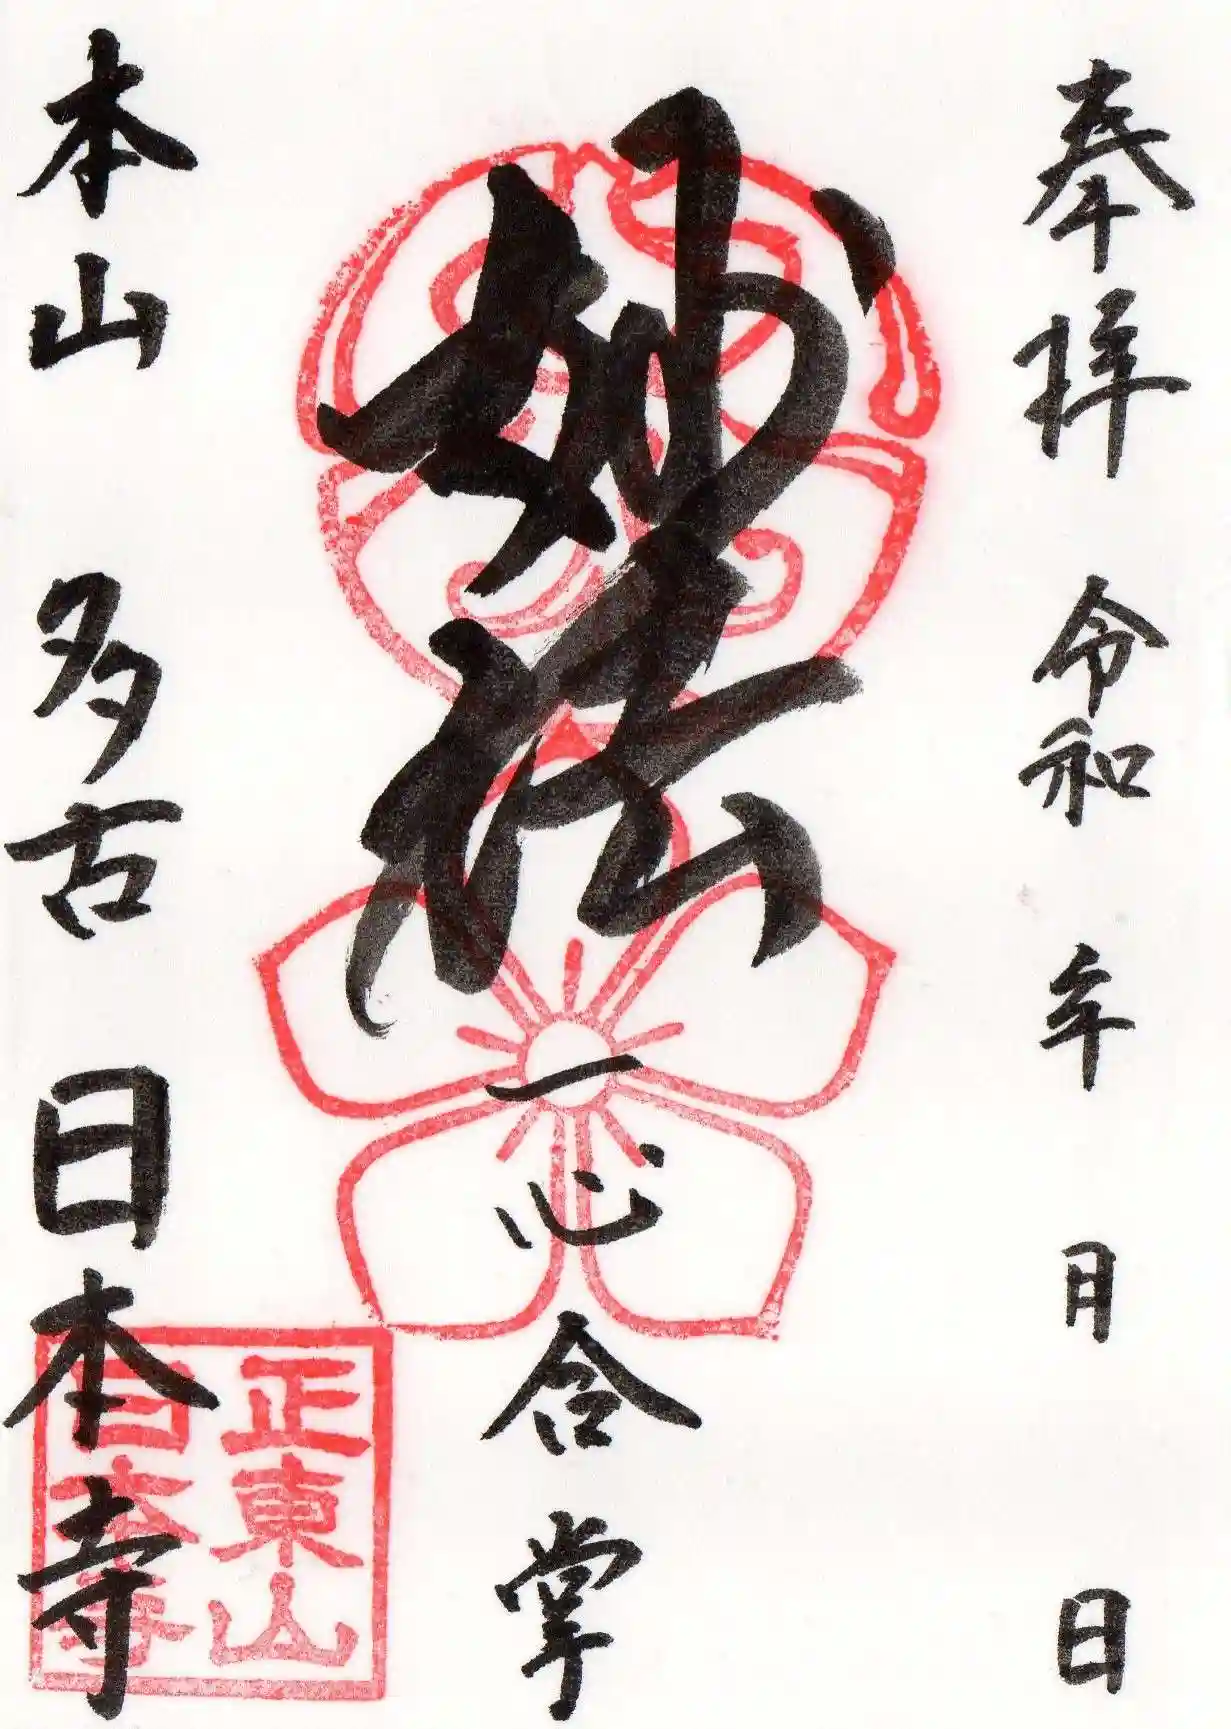 奉拝 令和 年 月 日
妙法
一心合掌
本山 多古 日本寺
正東山
日本寺